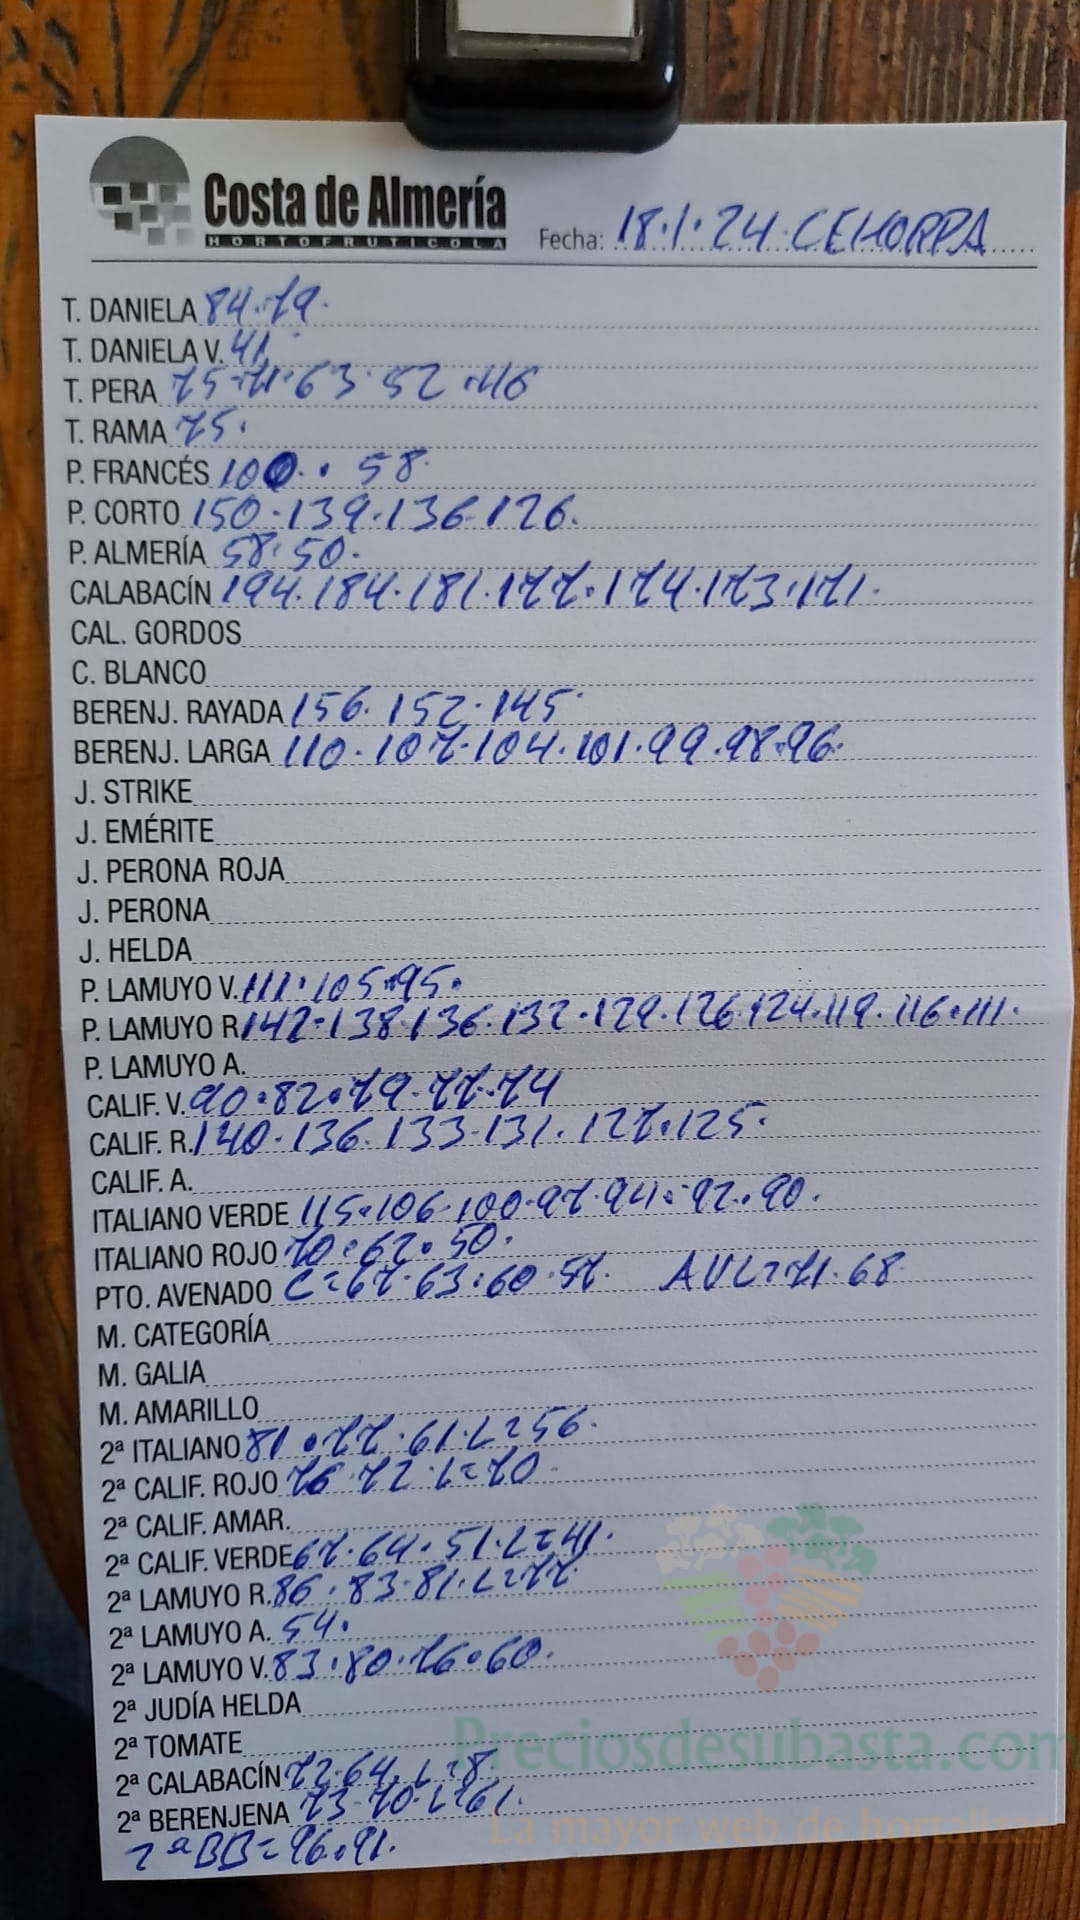 Costa de Almería
HORTOFRUTICOLA
Fecha: 18.1.24. CEHORPA
T. DANIELA 84.79.
T. DANIELA V. 41.
T. PERA 75.71.63.52.46
T. RAMA 75.
P. FRANCÉS 100. 58.
P. CORTO 150.139.136.126.
P. ALMERÍA 58.50.
CALABACÍN 194.184.181.177.174.173.171.
CAL. GORDOS
C. BLANCO
BERENJ. RAYADA 156.152.145
BERENJ. LARGA 110.107.104.101.99.98.96.
J. STRIKE
J. EMÉRITE
J. PERONA ROJA
J. PERONA
J. HELDA
P. LAMUYO V. 111.105.95.
P. LAMUYO R. 142.138.136.132.129.126.124.119.116.111.
P. LAMUYO A.
CALIF. V. 90.82.79.77.74
CALIF. R. 140.136.133.131.127.125.
CALIF. A.
ITALIANO VERDE 115.106.100.97.94.92.90.
ITALIANO ROJO 70.62.50.
PTO. AVENADO C=67.63.60.57. AVL=71.68
M. CATEGORÍA
M. GALIA
M. AMARILLO
2ª ITALIANO 81.77.61.L=56.
2ª CALIF. ROJO 76.72.L=70.
2ª CALIF. AMAR.
2ª CALIF. VERDE 67.64.51.L=41.
2ª LAMUYO R. 86.83.81.L=77
2ª LAMUYO A. 54.
2ª LAMUYO V. 83.80.76.60.
2ª JUDÍA HELDA
2ª TOMATE
2ª CALABACÍN 72.64.L=8.
2ª BERENJENA 73.70.L=61.
2ªBB=96.91.
Preciosdesubasta.com
La mayor web de hortalizas